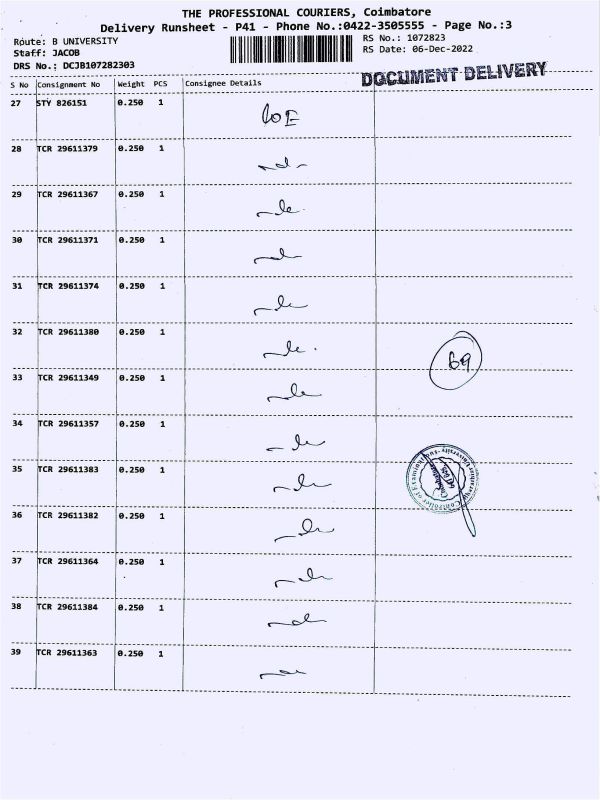 THE PROFESSIONAL COURIERS, Coimbatore
Delivery Runsheet - P41 - Phone No.:0422-3505555 - Page No.:3
Route: B UNIVERSITY
Staff: JACOB
DRS No.: DCJB107282303
RS No.: 1072823
RS Date: 06-Dec-2022
DOCUMENT DELIVERY
S No Consignment No Weight PCS Consignee Details
27 STY 826151 0.250 1 COE
28 TCR 29611379 0.250 1
29 TCR 29611367 0.250 1
30 TCR 29611371 0.250 1
31 TCR 29611374 0.250 1
32 TCR 29611380 0.250 1
69
33 TCR 29611349 0.250 1
34 TCR 29611357 0.250 1
35 TCR 29611383 0.250 1
36 TCR 29611382 0.250 1
37 TCR 29611364 0.250 1
38 TCR 29611384 0.250 1
39 TCR 29611363 0.250 1